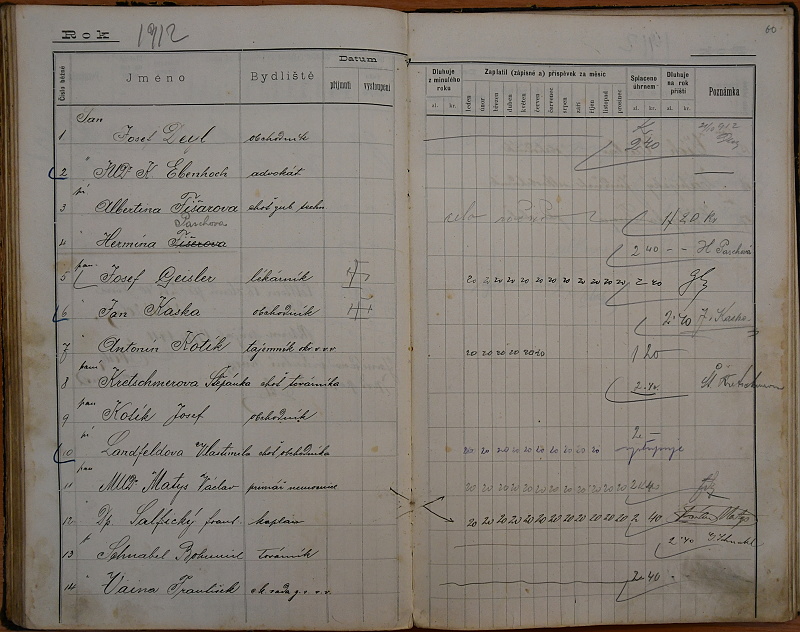 Rok 1912
60
Číslo běžné
Jméno
Bydliště
Datum
přijmutí
vystoupení
Dluhuje z minulého roku
zl. kr.
Zaplatil (zápisné a) příspěvek za měsíc
leden únor březen duben květen červen červenec srpen září říjen listopad prosinec
Splaceno úhrnem
zl. kr.
Dluhuje na rok příští
zl. kr.
Poznámka
Pan
1 Josef Deyl obchodník K 2 40
2 " JUDr K Ebenhoch advokát
pí
3 Albertina Fišarova choť gub. techn
Paschova
4 " Hermina Fišerova 2 40 - - H Paschová
pan
5 Josef Geisler lékárník 20 20 20 20 20 20 20 20 20 20 20 20 2 40
6 " Jan Kaska obchodník 2·40 J. Kaska
7 " Antonín Kotík tajemník okr. v. v. 20 20 20 20 20 20 1 20
paní
8 Kretschmerova Štěpánka choť továrníka 2.40 Št Kretschmerova
pan
9 Kotík Josef obchodník
pí
10 Landfeldova Vlastimila choť obchodníka 20 20 20 20 20 20 20 20 20 20 2 — vystupuje
pan
11 MUDr. Matys Václav primář nemocnice 20 20 20 20 20 20 20 20 20 20 20 20 2 40
12 " Dp. Salfický frant. kaplan 20 20 20 20 20 20 20 20 20 20 20 20 2 40 Matys
13 Schnabel Bohumil továrník 2·40
14 " Vaina František 2·40